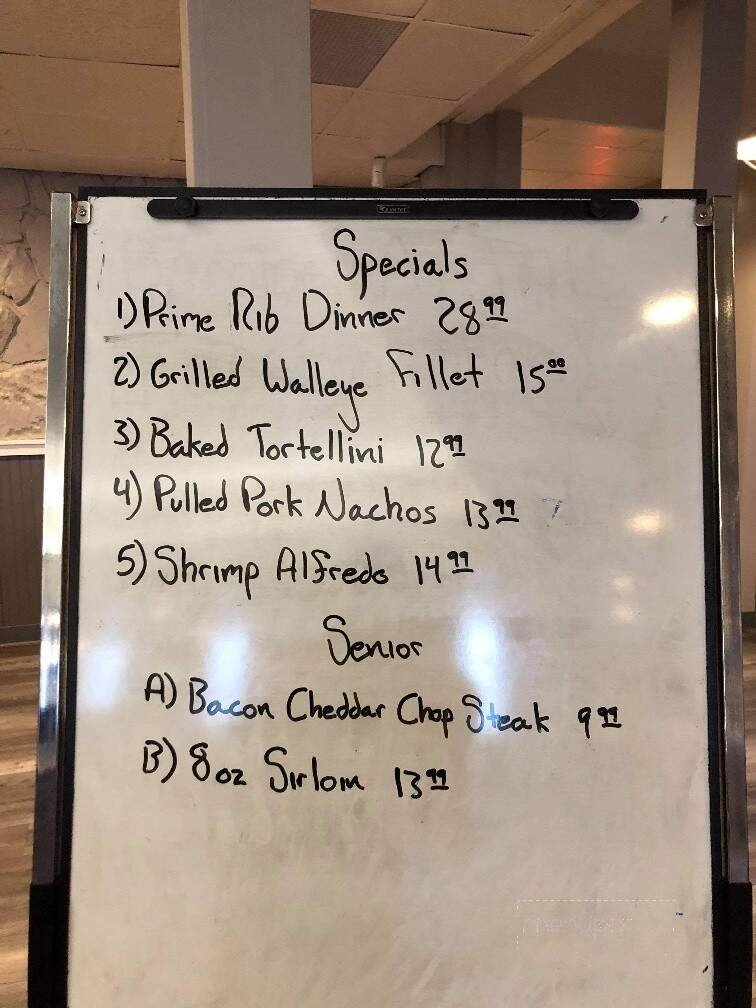 Specials
1) Prime Rib Dinner 28 99
2) Grilled Walleye Fillet 15 00
3) Baked Tortellini 12 99
4) Pulled Pork Nachos 13 99
5) Shrimp Alfredo 14 99
Senior
A) Bacon Cheddar Chop Steak 9 99
B) 8 oz Sirloin 13 99